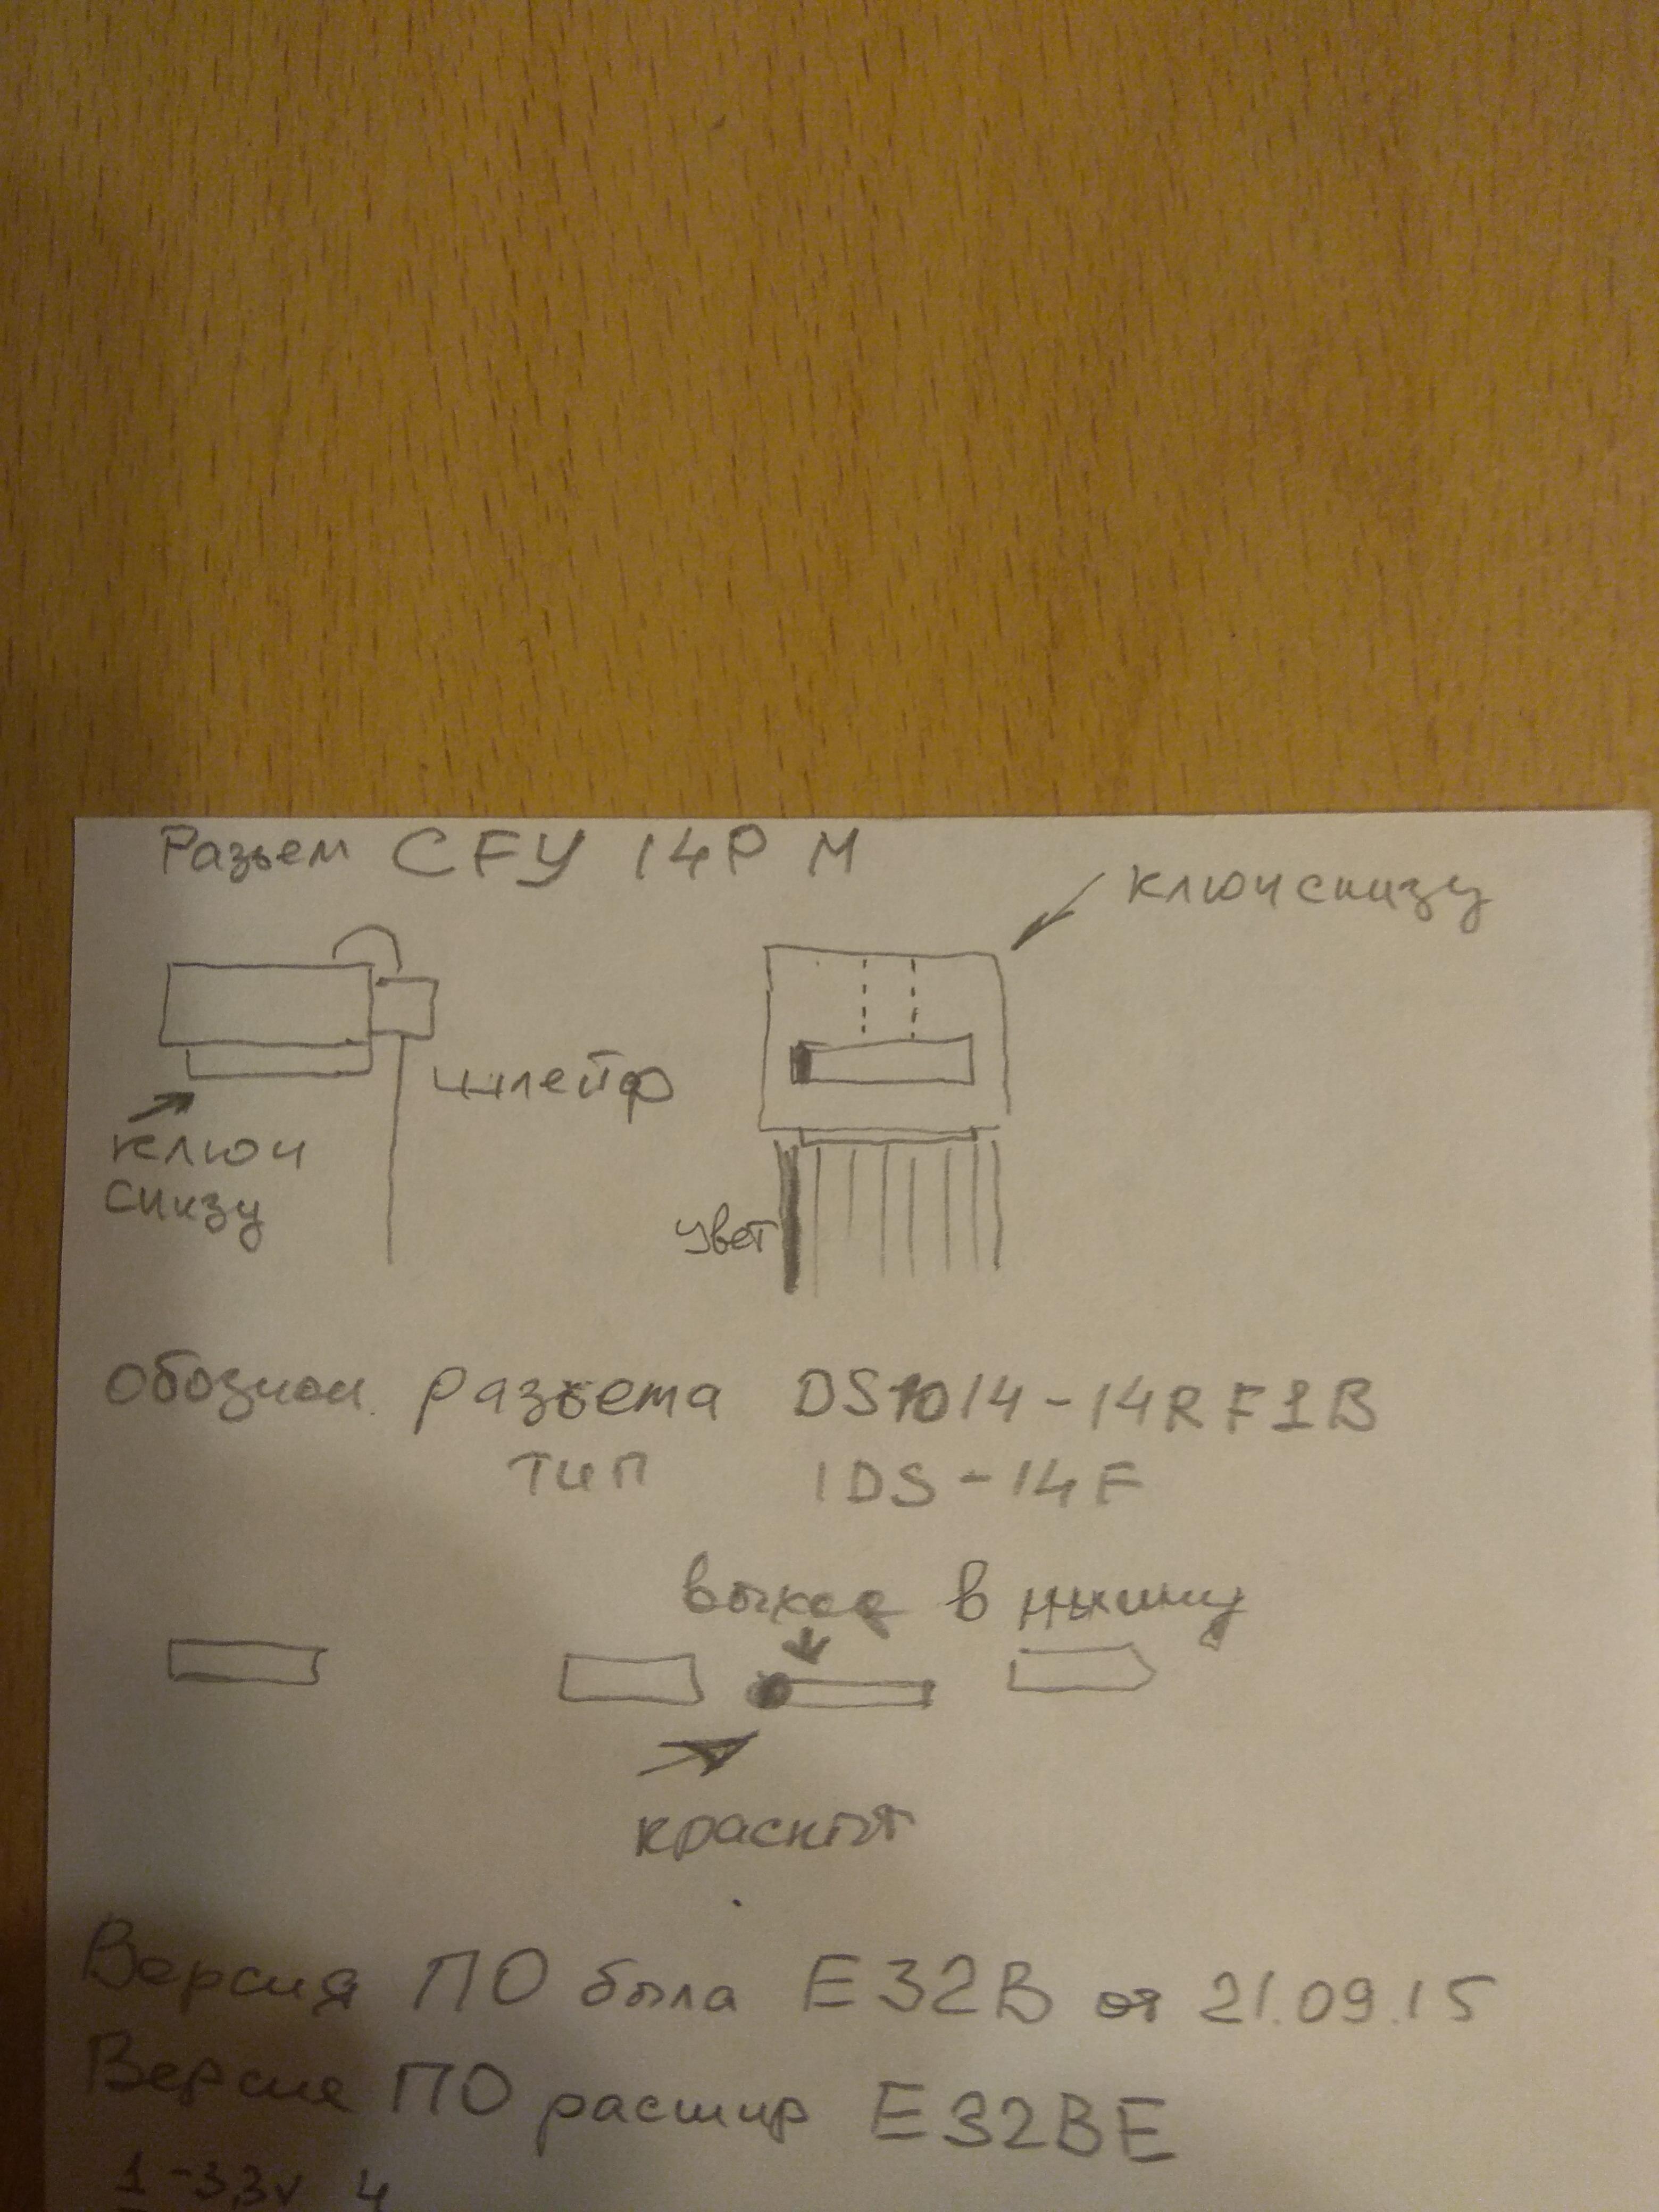 Разъем CFY 14P M
ключ снизу
шлейф
ключ
снизу
цвет
Обознач. разъема DS1014-14RF1B
тип IDS-14F
выход в нишу
красный
Версия ПО была E32B от 21.09.15
Версия ПО расшир E32BE
1 -3,3v 4